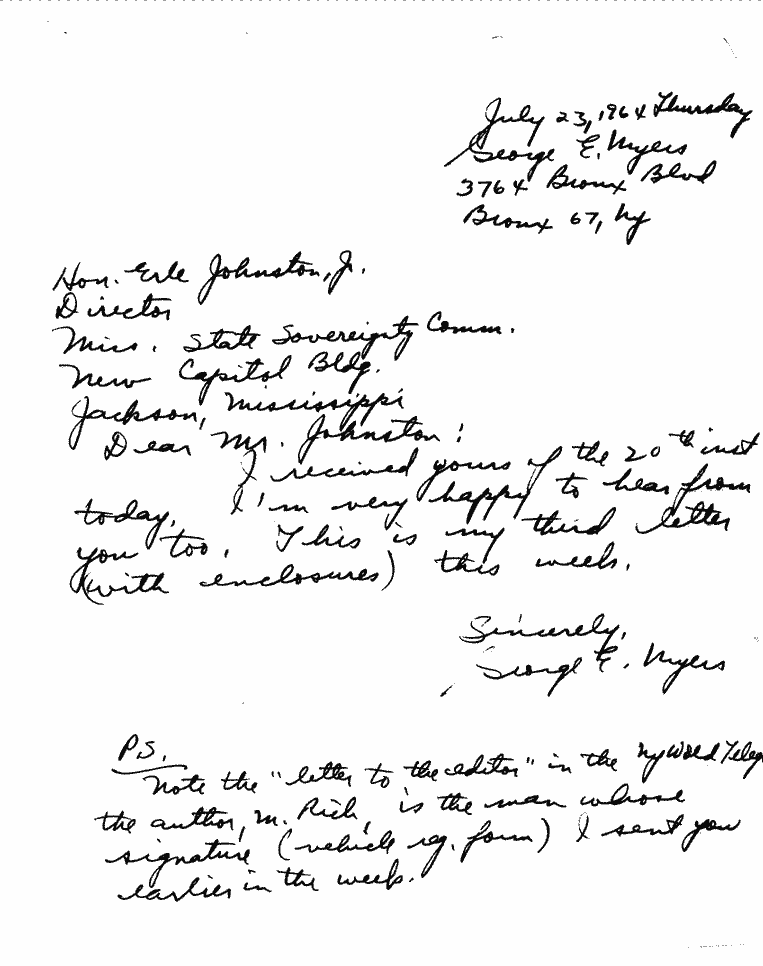 July 23, 1964 Thursday
George E. Myers
3764 Bronx Blvd
Bronx 67, Ny
Hon. Erle Johnston, Jr.
Director
Miss. State Sovereignty Comm.
New Capitol Bldg.
Jackson, Mississippi
Dear Mr. Johnston:
I received yours of the 20th inst
today. I'm very happy to hear from
you too. This is my third letter
(with enclosures) this week.
Sincerely,
George E. Myers
P.S.
Note the "letter to the editor" in the Ny World Teleg
the author, M. Rich, is the man whose
signature (vehicle reg. form) I sent you
earlier in the week.